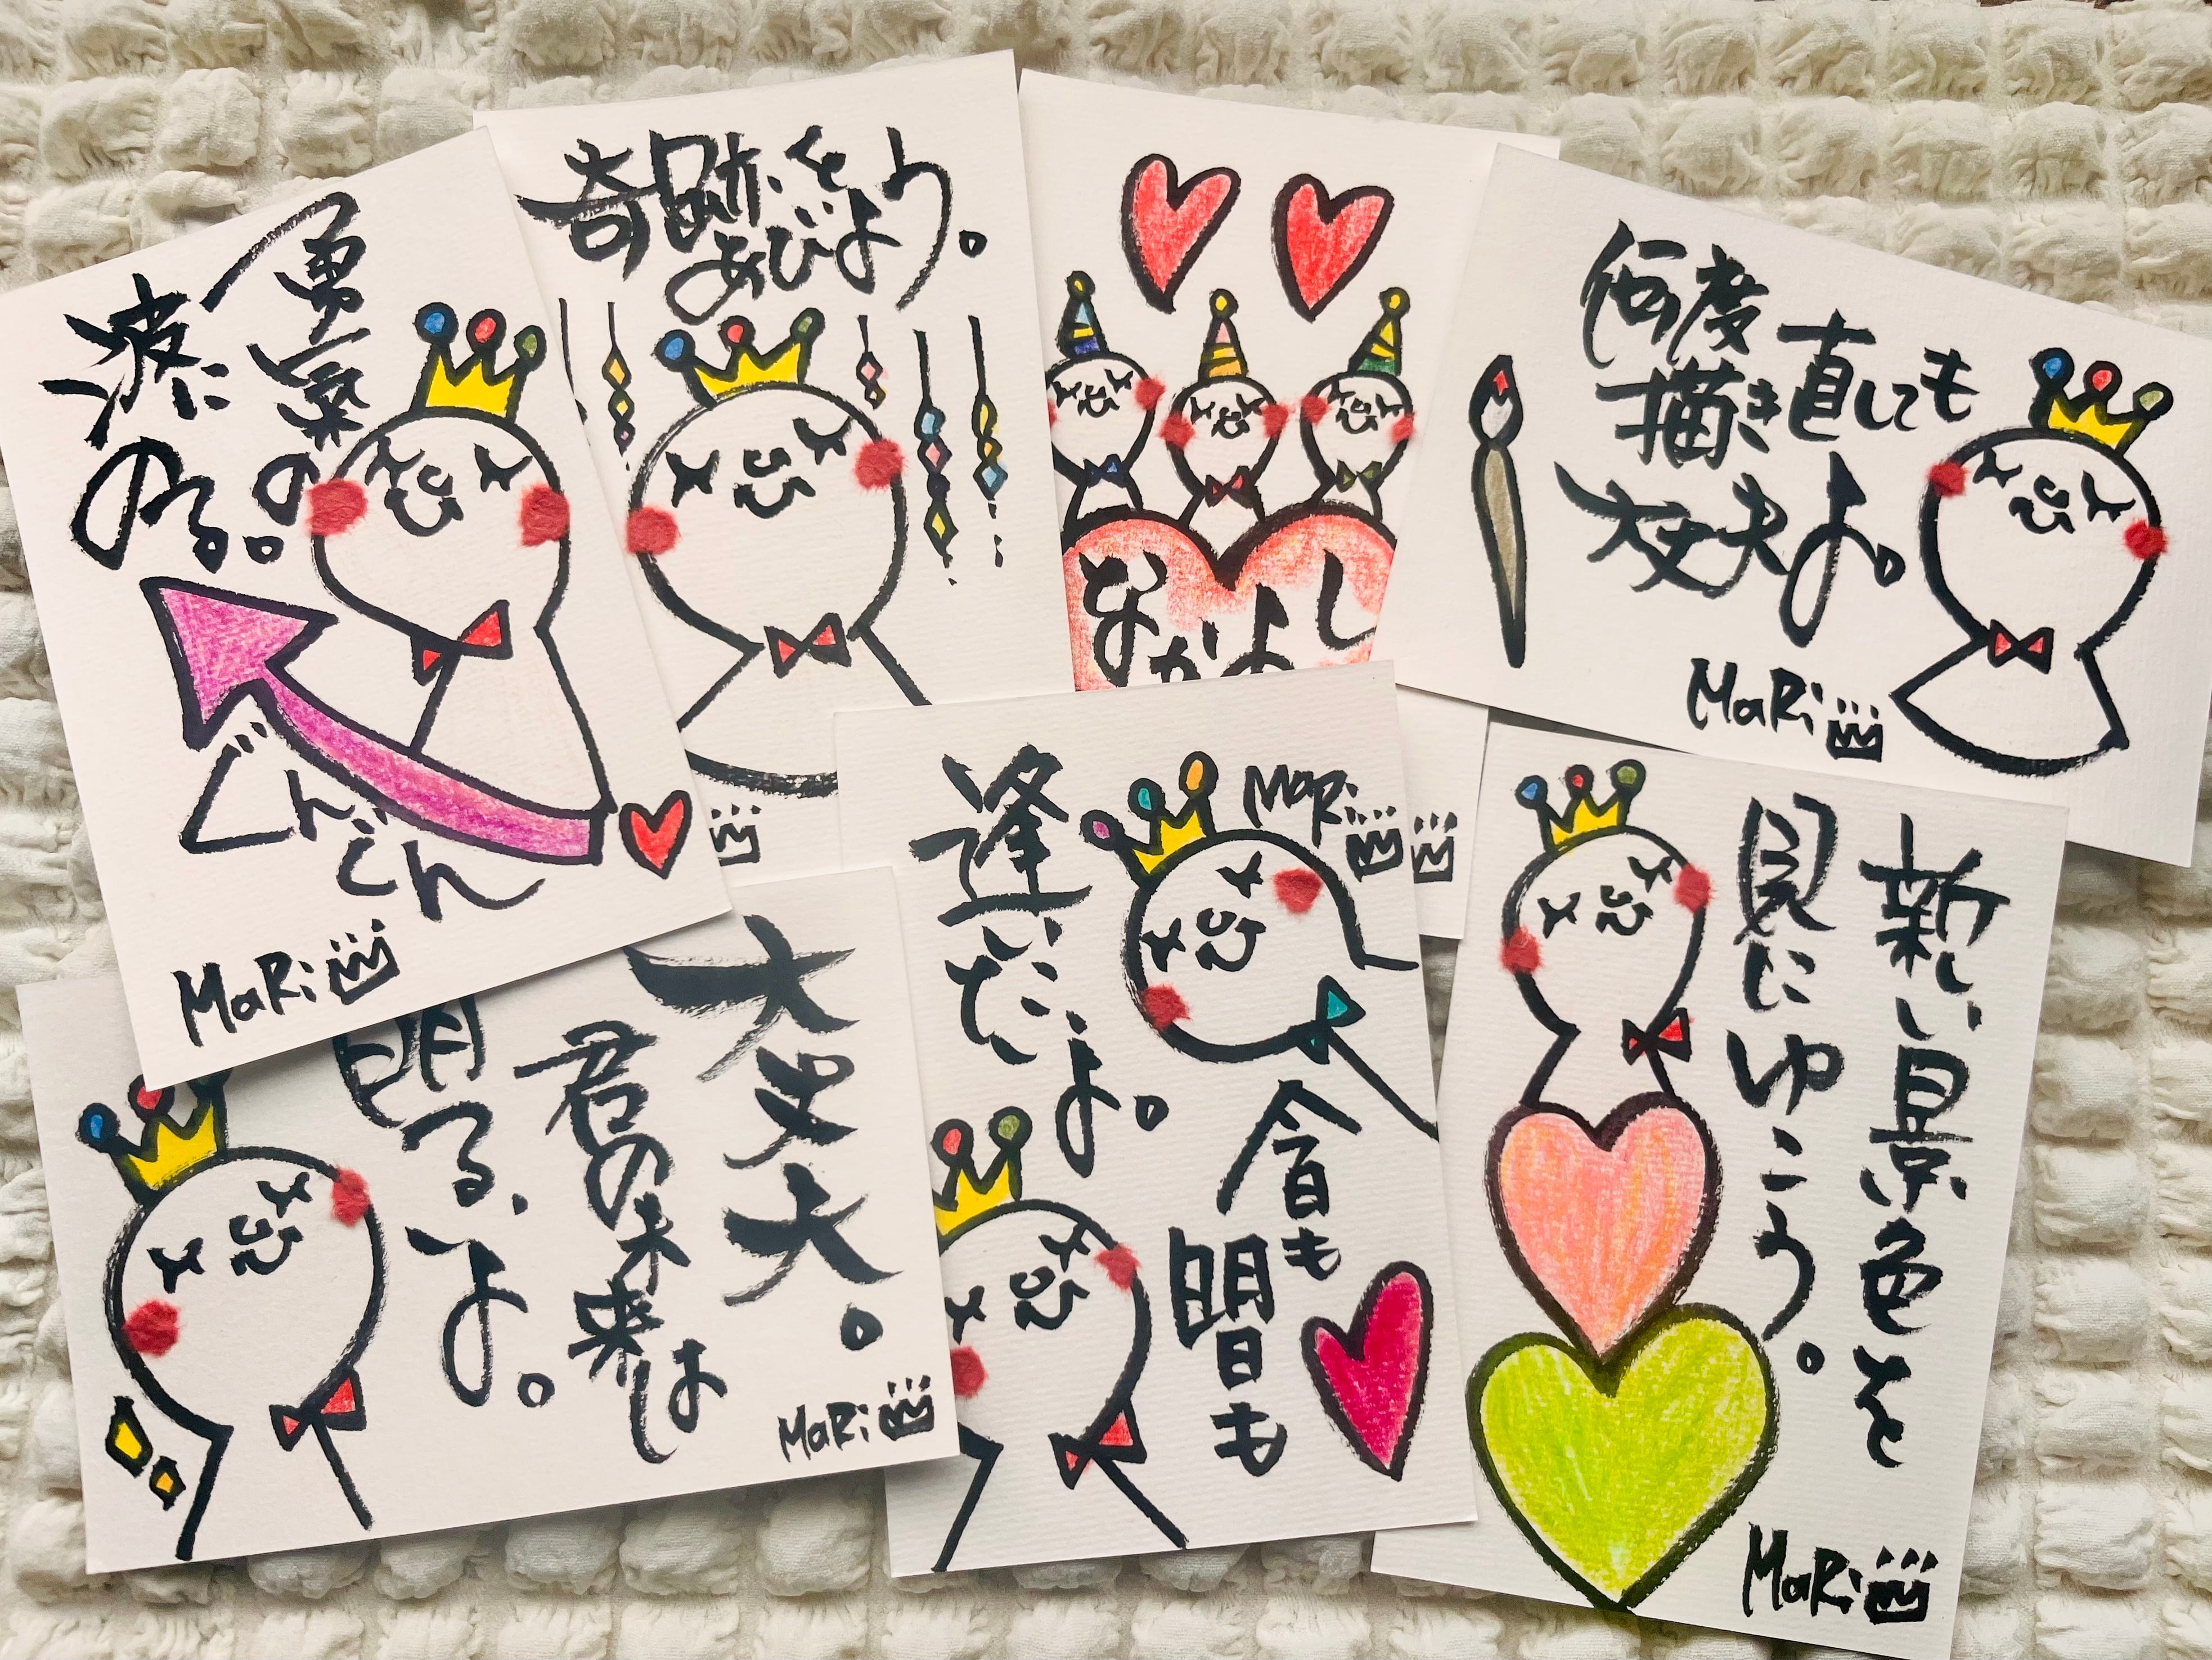 勇氣の
波に
のる。
ぐんぐん
MaRi
奇跡を
あびよう。
なかよし
何度
描き直しても
大丈夫よ。
MaRi
大丈夫。
君の未来は
明るいよ。
MaRi
MaRi
今日も
明日も
逢だよ。
新しい景色を
見にゆこう。
MaRi